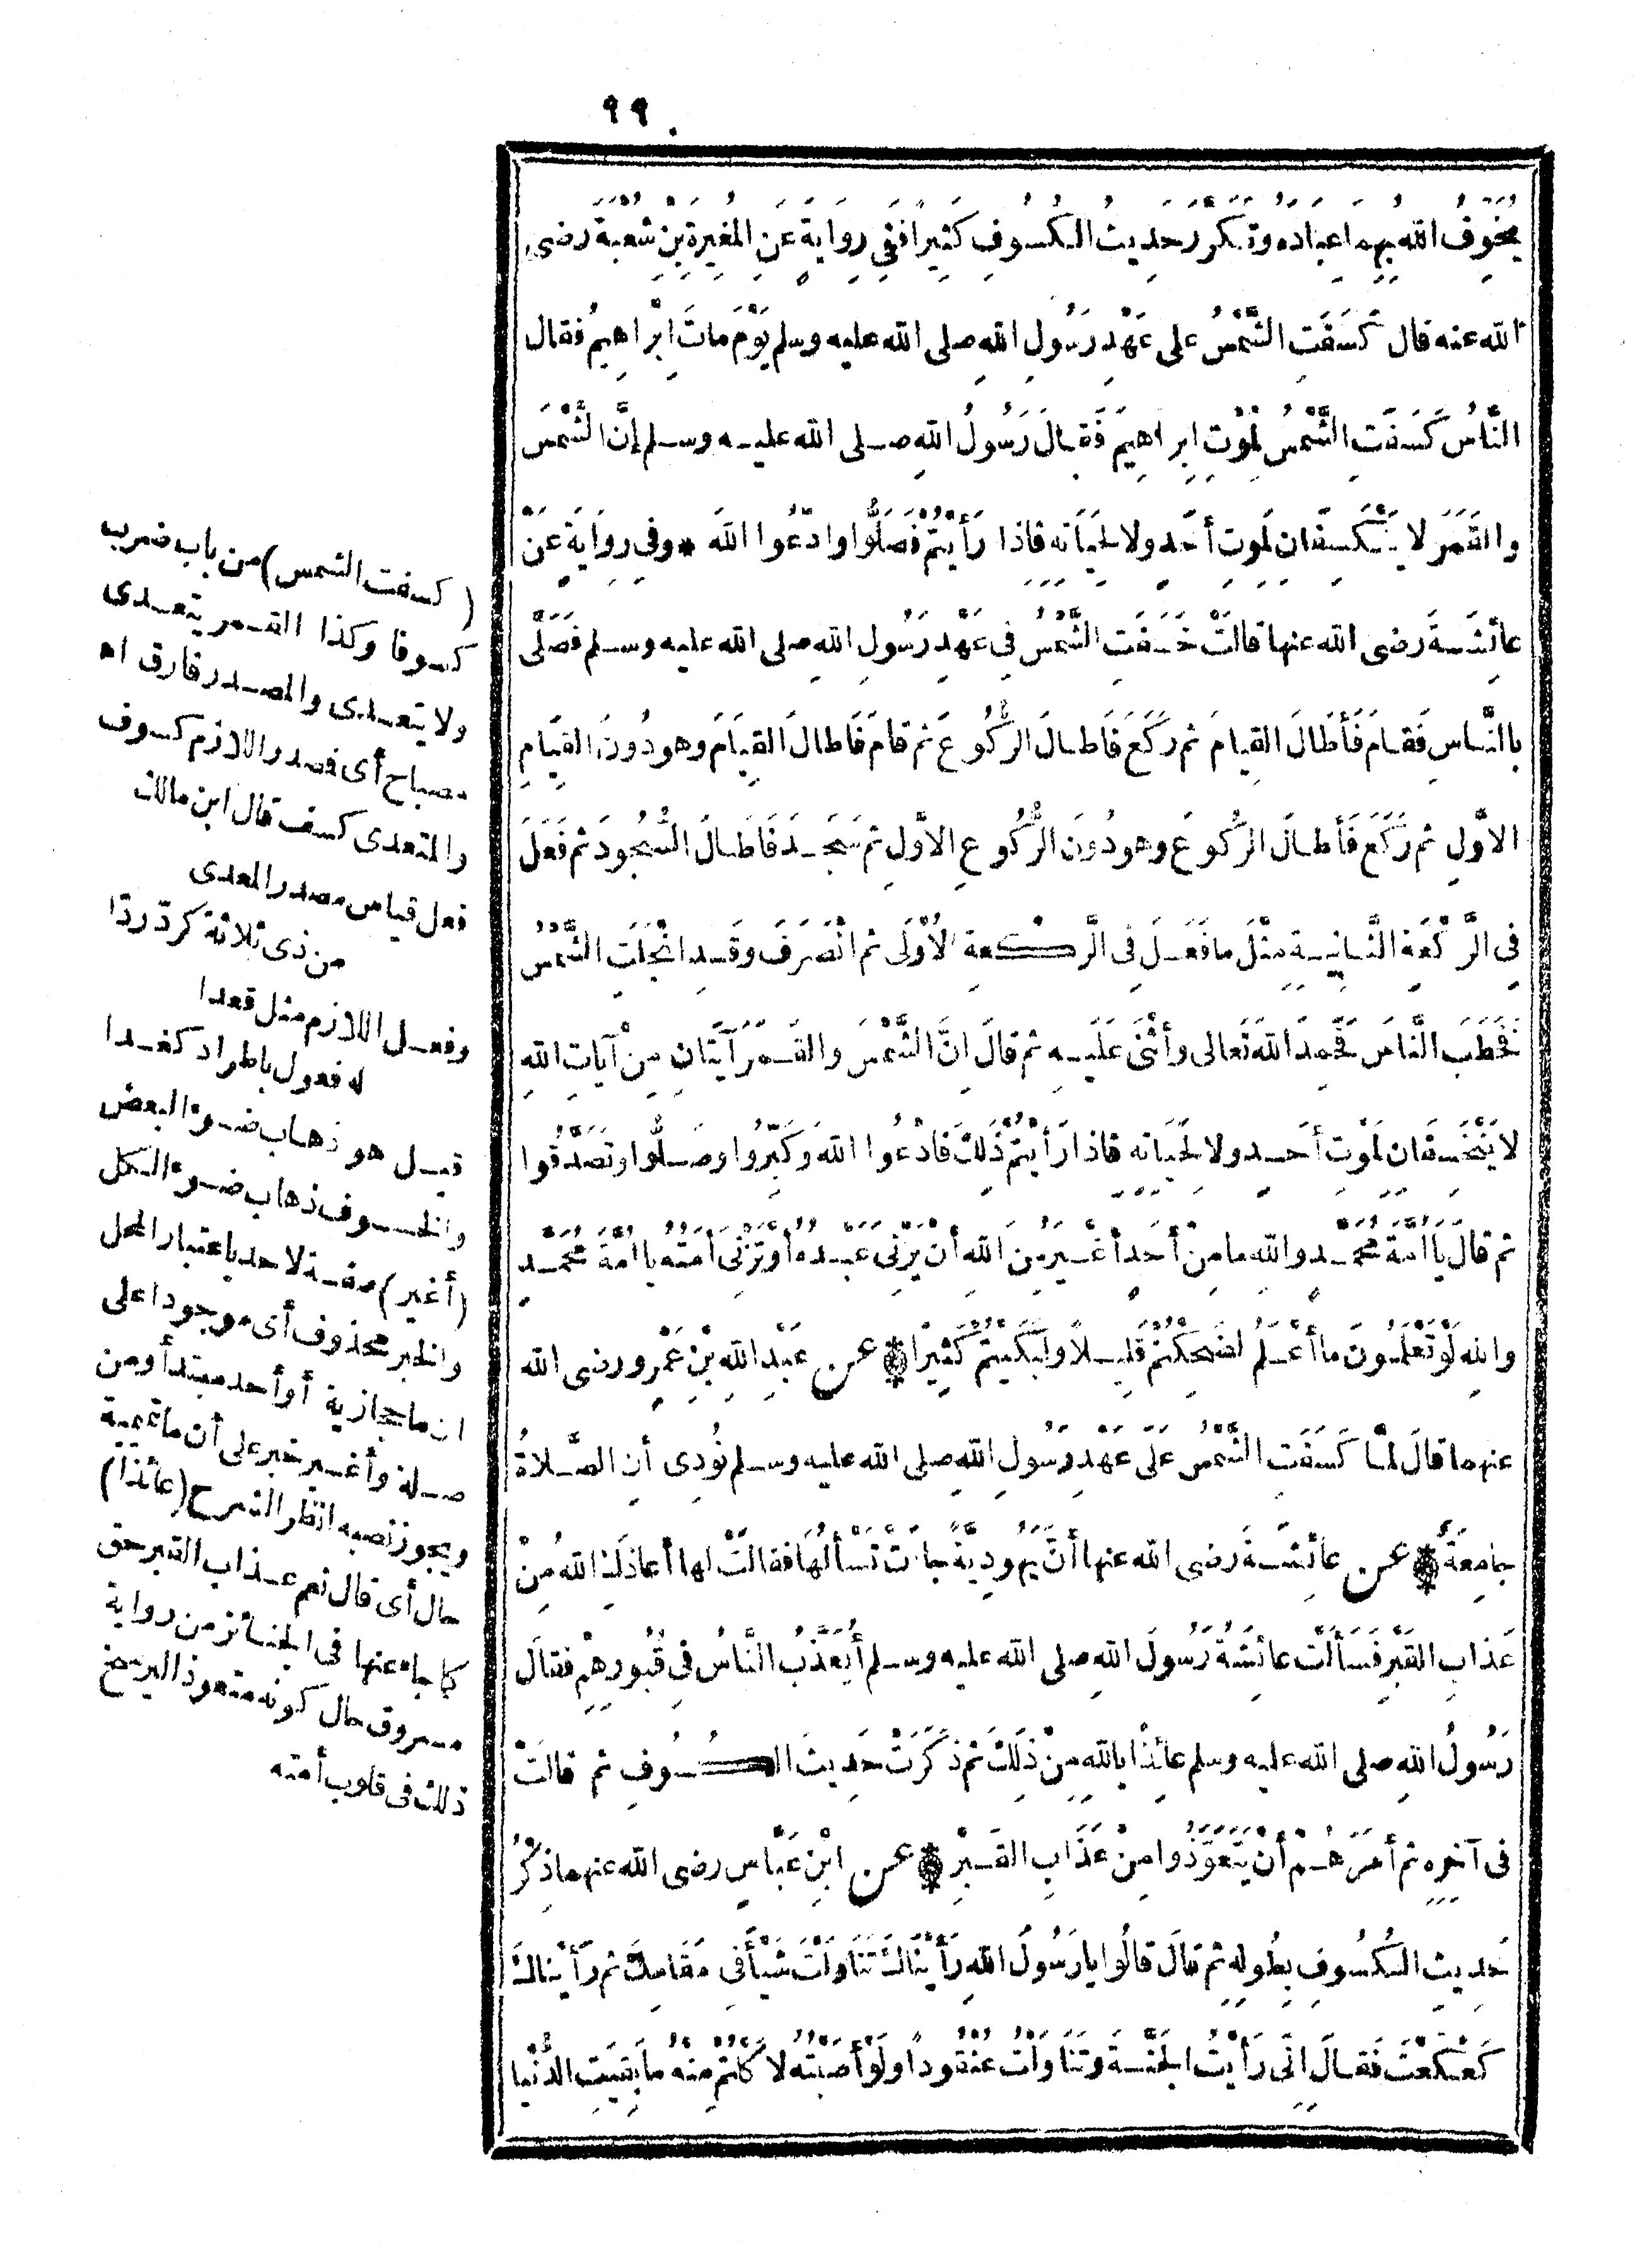 ٩٩
يُخَوِّفُ اللهُ بِهِما عِبَادَهُ وتَكَرَّرَ حَدِيثُ الكُسُوفِ كَثِيرًا فَفِي رِوَايَةٍ عَنِ المُغِيرَةِ بْنِ شُعْبَةَ رَضى
الله عنه قال كَسَفَتِ الشَّمْسُ على عَهْدِ رَسُولِ اللهِ صلى الله عليه وسلم يَوْمَ مَاتَ إبْرَاهِيمُ فقال
النَّاسُ كَسَفَتِ الشَّمْسُ لِمَوْتِ إِبراهِيمَ فَقَالَ رَسُولُ اللهِ صلى الله عليه وسلم إنَّ الشَّمْسَ
والقَمَرَ لا يَنْكَسِفَانِ لِمَوتِ أَحَدٍ ولا لِحَيَاتِهِ فَإِذا رَأَيْتُمْ فَصَلُّوا وادْعُوا اللهَ * وفى رِوَايَةٍ عَنْ
عائِشَةَ رَضى الله عنها قالَتْ خَسَفَتِ الشَّمْسُ فِي عَهْدِ رَسُولِ اللهِ صلى الله عليه وسلم فَصَلَّى
بِالنَّاسِ فَقَامَ فَأَطَالَ القِيامَ ثم رَكَعَ فَاطالَ الرُّكُوعَ ثم قامَ فَاطالَ القِيَامَ وهو دُونَ القِيَامِ
الاوَّلِ ثم رَكَعَ فَأطالَ الرُّكُوعَ وهو دُونَ الرُّكُوعِ الاوَّلِ ثم سَجَدَ فَاطَالَ السُّجُودَ ثم فَعَلَ
فِي الرَّكْعَةِ الثَّانِيَةِ مِثْلَ ما فَعَلَ فِى الرَّكعةِ الاُولَى ثم انْصَرَفَ وَقَدِ انْجَلَتِ الشَّمْسُ
فَخَطَبَ النَّاسَ فَحَمِدَ اللهَ تَعَالى وأَثْنَى عَلَيهِ ثم قالَ إِنَّ الشَّمْسَ والقَمَرَ آيَتَانِ مِنْ آيَاتِ اللهِ
لا يَنْخَسِفَانِ لِمَوْتِ أَحَدٍ ولا لِحَيَاتِهِ فاذا رَأَيْتُمْ ذَلِكَ فَادْعُوا اللهَ وَكَبِّرُوا وصَلُّوا وتَصَدَّقُوا
ثم قالَ يَا أُمَّةَ مُحَمَّدٍ واللهِ ما مِنْ أَحَدٍ أَغْيَرُ مِنَ اللهِ أَن يَزْنِىَ عَبْدُهُ أَوْ تَزْنِىَ أَمَتُهُ يا أُمَّةَ مُحَمَّدٍ
واللهِ لَوْ تَعْلَمُونَ ما أَعْلَمُ لضَحِكْتُمْ قَلِيلًا ولَبَكَيْتُمْ كَثِيرًا ۞ عن عَبْدِ اللهِ بْنِ عَمْرٍو رضى الله
عنهما قالَ لَمَّا كَسَفَتِ الشَّمْسُ عَلَى عَهْدِ رَسُولِ اللهِ صلى الله عليه وسلم نُودِى أنِ الصَّلاةُ
جامِعَةٌ ۞ عن عائِشَةَ رضى الله عنها أَنَّ يَهُودِيَّةً جاءَتْ تَسْأَلُهَا فقالَتْ لها أعاذَكِ اللهُ مِنْ
عَذَابِ القَبْرِ فَسَأَلَتْ عائِشَةُ رَسُولَ اللهِ صلى الله عليه وسلم أَيُعَذَّبُ النَّاسُ فِي قُبُورِهِمْ فقالَ
رَسُولُ اللهِ صلى الله عليه وسلم عائِذًا بِاللهِ مِنْ ذَلِكَ ثم ذَكَرَتْ حَدِيثَ الكُسُوفِ ثم قالَتْ
فى آخِرِهِ ثم أَمَرَهُمْ أَنْ يَتَعَوَّذُوا مِنْ عَذَابِ القَبْرِ ۞ عن ابْنِ عَبَّاسٍ رضى الله عنهما ذَكَرَ
حَدِيثَ الكُسُوفِ بِطُولِهِ ثم قالَ قالُوا يا رَسُولَ اللهِ رَأَيْنَاكَ تَنَاوَلْتَ شَيْأً فِى مَقَامِكَ ثم رَأَيْناكَ
كَعْكَعْتَ فَقَالَ إِنِّى رَأَيْتُ الجَنَّةَ وتَنَاوَلْتُ عُنْقُودًا ولَوْ أَصَبْتُهُ لَأَكَلْتُمْ مِنْهُ ما بَقِيَتِ الدُّنْيَا
(كسفت الشمس) من باب ضرب
كسوفا وكذا القمر يتعدى
ولا يتعدى والمصدر فارق اه
مصباح أى فصدر اللازم كسوف
والمتعدى كسف قال ابن مالك
فعل قياس مصدر المعدى
من ذى ثلاثة كرد ردّا
وفعل اللازم مثل قعدا
له فعول باطراد كغدا
قيل هو ذهاب ضوء البعض
والخسوف ذهاب ضوء الكل
(أغير) صفة لاحد باعتبار المحل
والخبر محذوف أى موجودا على
ان ما حجازية أو أحد مبتدأ ومن
صلة وأغير خبر على أن ما تميمية
ويجوز نصبه انظر الشرح (عائذا)
حال أى قال نعم عذاب القبر حق
كما جاء عنها فى الجنائز من رواية
مسروق حال كونه متعوذا ليرسخ
ذلك فى قلوب أمته